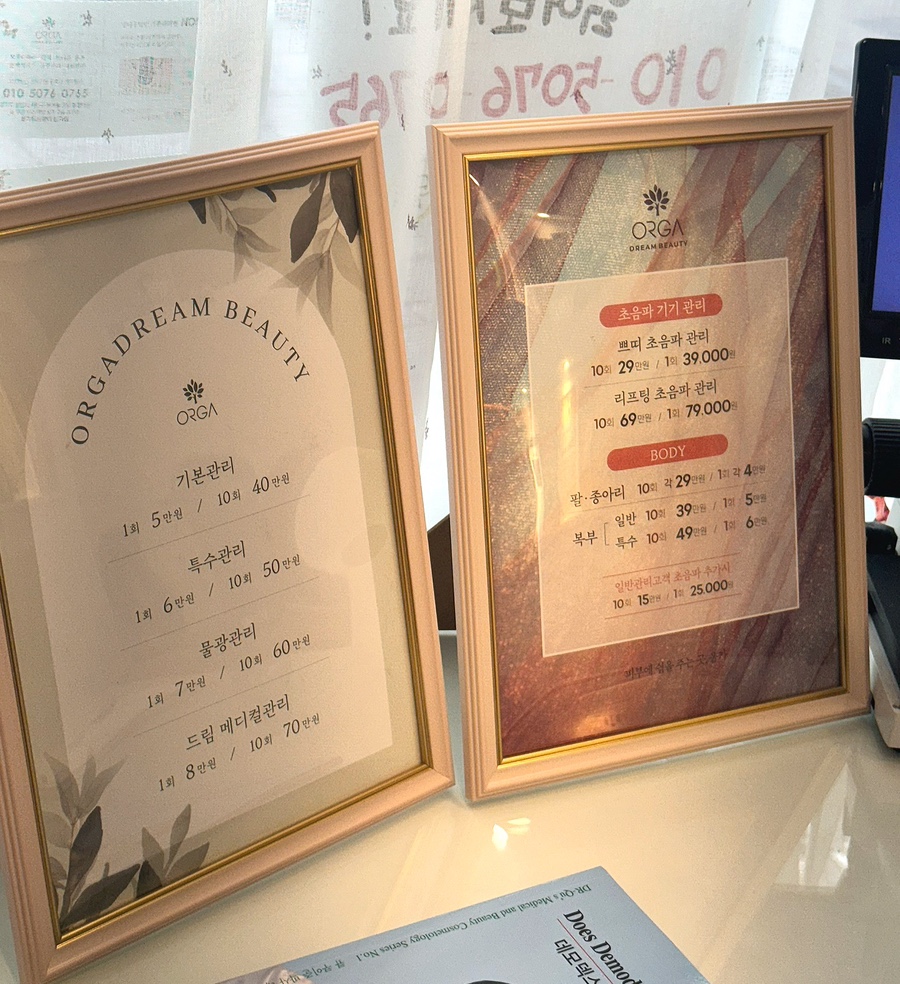 읽어보세요!
010-5076-0765
ORGA
010 5076 0765
ORGADREAM BEAUTY
ORGA
기본관리
1회 5만원 / 10회 40만원
특수관리
1회 6만원 / 10회 50만원
물광관리
1회 7만원 / 10회 60만원
드림 메디컬관리
1회 8만원 / 10회 70만원
ORGA
DREAM BEAUTY
초음파 기기 관리
쁘띠 초음파 관리
10회 29만원 / 1회 39,000원
리프팅 초음파 관리
10회 69만원 / 1회 79,000원
BODY
팔·종아리 10회 각 29만원 / 1회 각 4만원
복부
일반 10회 39만원 / 1회 5만원
특수 10회 49만원 / 1회 6만원
일반관리고객 초음파 추가시
10회 15만원 / 1회 25,000원
피부에 쉼을 주는 곳,
IR
DR-Qu's Medical and Beauty Cosmetology Series No.1
Does Demod
데모덱스